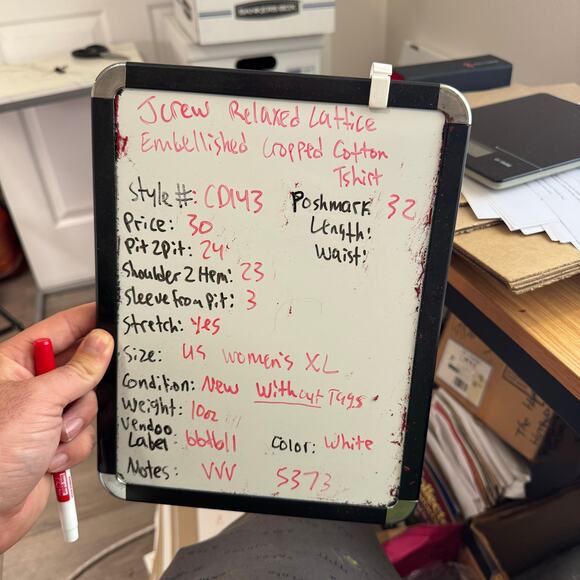 BANKERS BOX
Jcrew Relaxed Lattice
Embellished Cropped Cotton
Tshirt
Style #: CD143
Poshmark 32
Price: 30
Length:
Pit 2 Pit: 24
Waist:
Shoulder 2 Hem: 23
Sleeve from Pit: 3
Stretch: Yes
Size: US Women's XL
Condition: New Without Tags
Weight: 10oz
Vendoo
Label: bbtbll
Color: White
Notes: VVV 5373